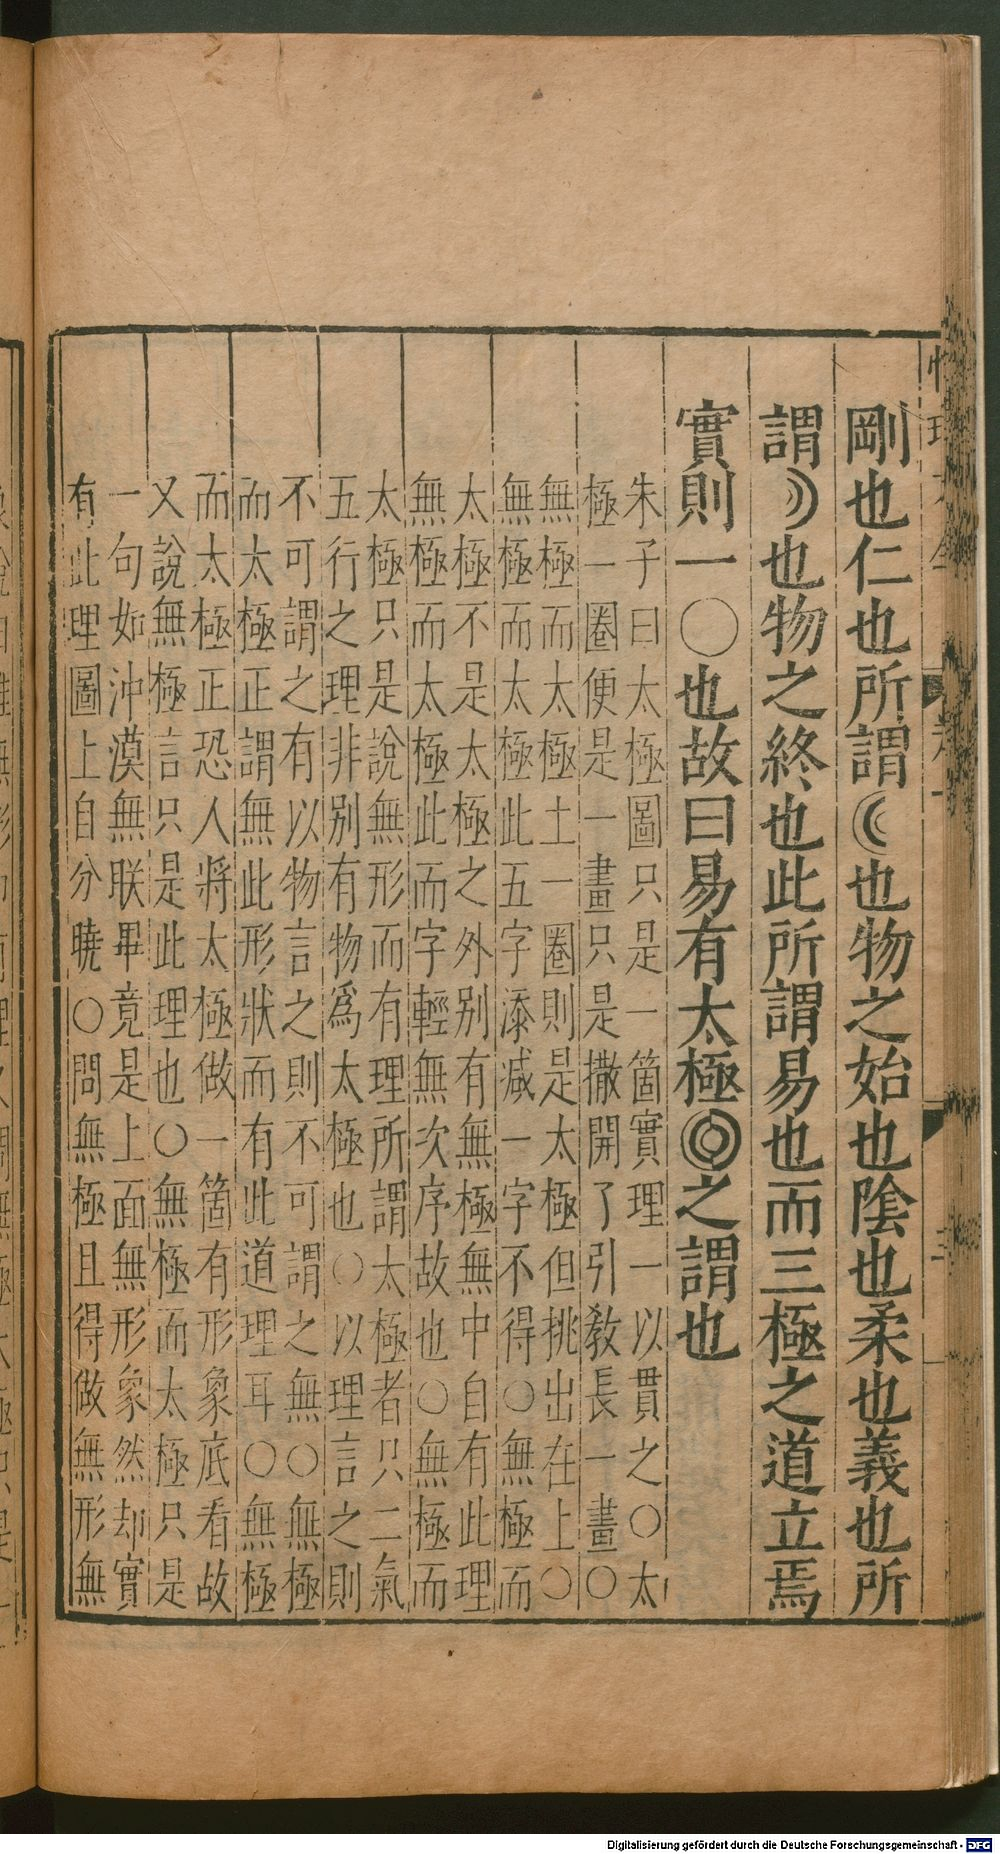 剛也仁也所謂☽也物之始也陰也柔也義也所
謂☽也物之終也此所謂易也而三極之道立焉
實則一〇也故曰易有太極◎之謂也
朱子曰太極圖只是一箇實理一以貫之〇太
極一圈便是一畫只是撒開了引敎長一畫〇
無極而太極土一圈則是太極但挑出在上〇
無極而太極此五字添减一字不得〇無極而
太極不是太極之外别有無極無中自有此理
無極而太極此而字輕無次序故也〇無極而
太極只是說無形而有理所謂太極者只二氣
五行之理非别有物爲太極也〇以理言之則
不可謂之有以物言之則不可謂之無〇無極
而太極正謂無此形狀而有此道理耳〇無極
而太極正恐人將太極做一箇有形象底看故
又說無極言只是此理也〇無極而太極只是
一句如沖漠無联畢竟是上面無形象然却實
有此理圖上自分曉〇問無極且得做無形無
Digitalisierung gefördert durch die Deutsche Forschungsgemeinschaft - DFG